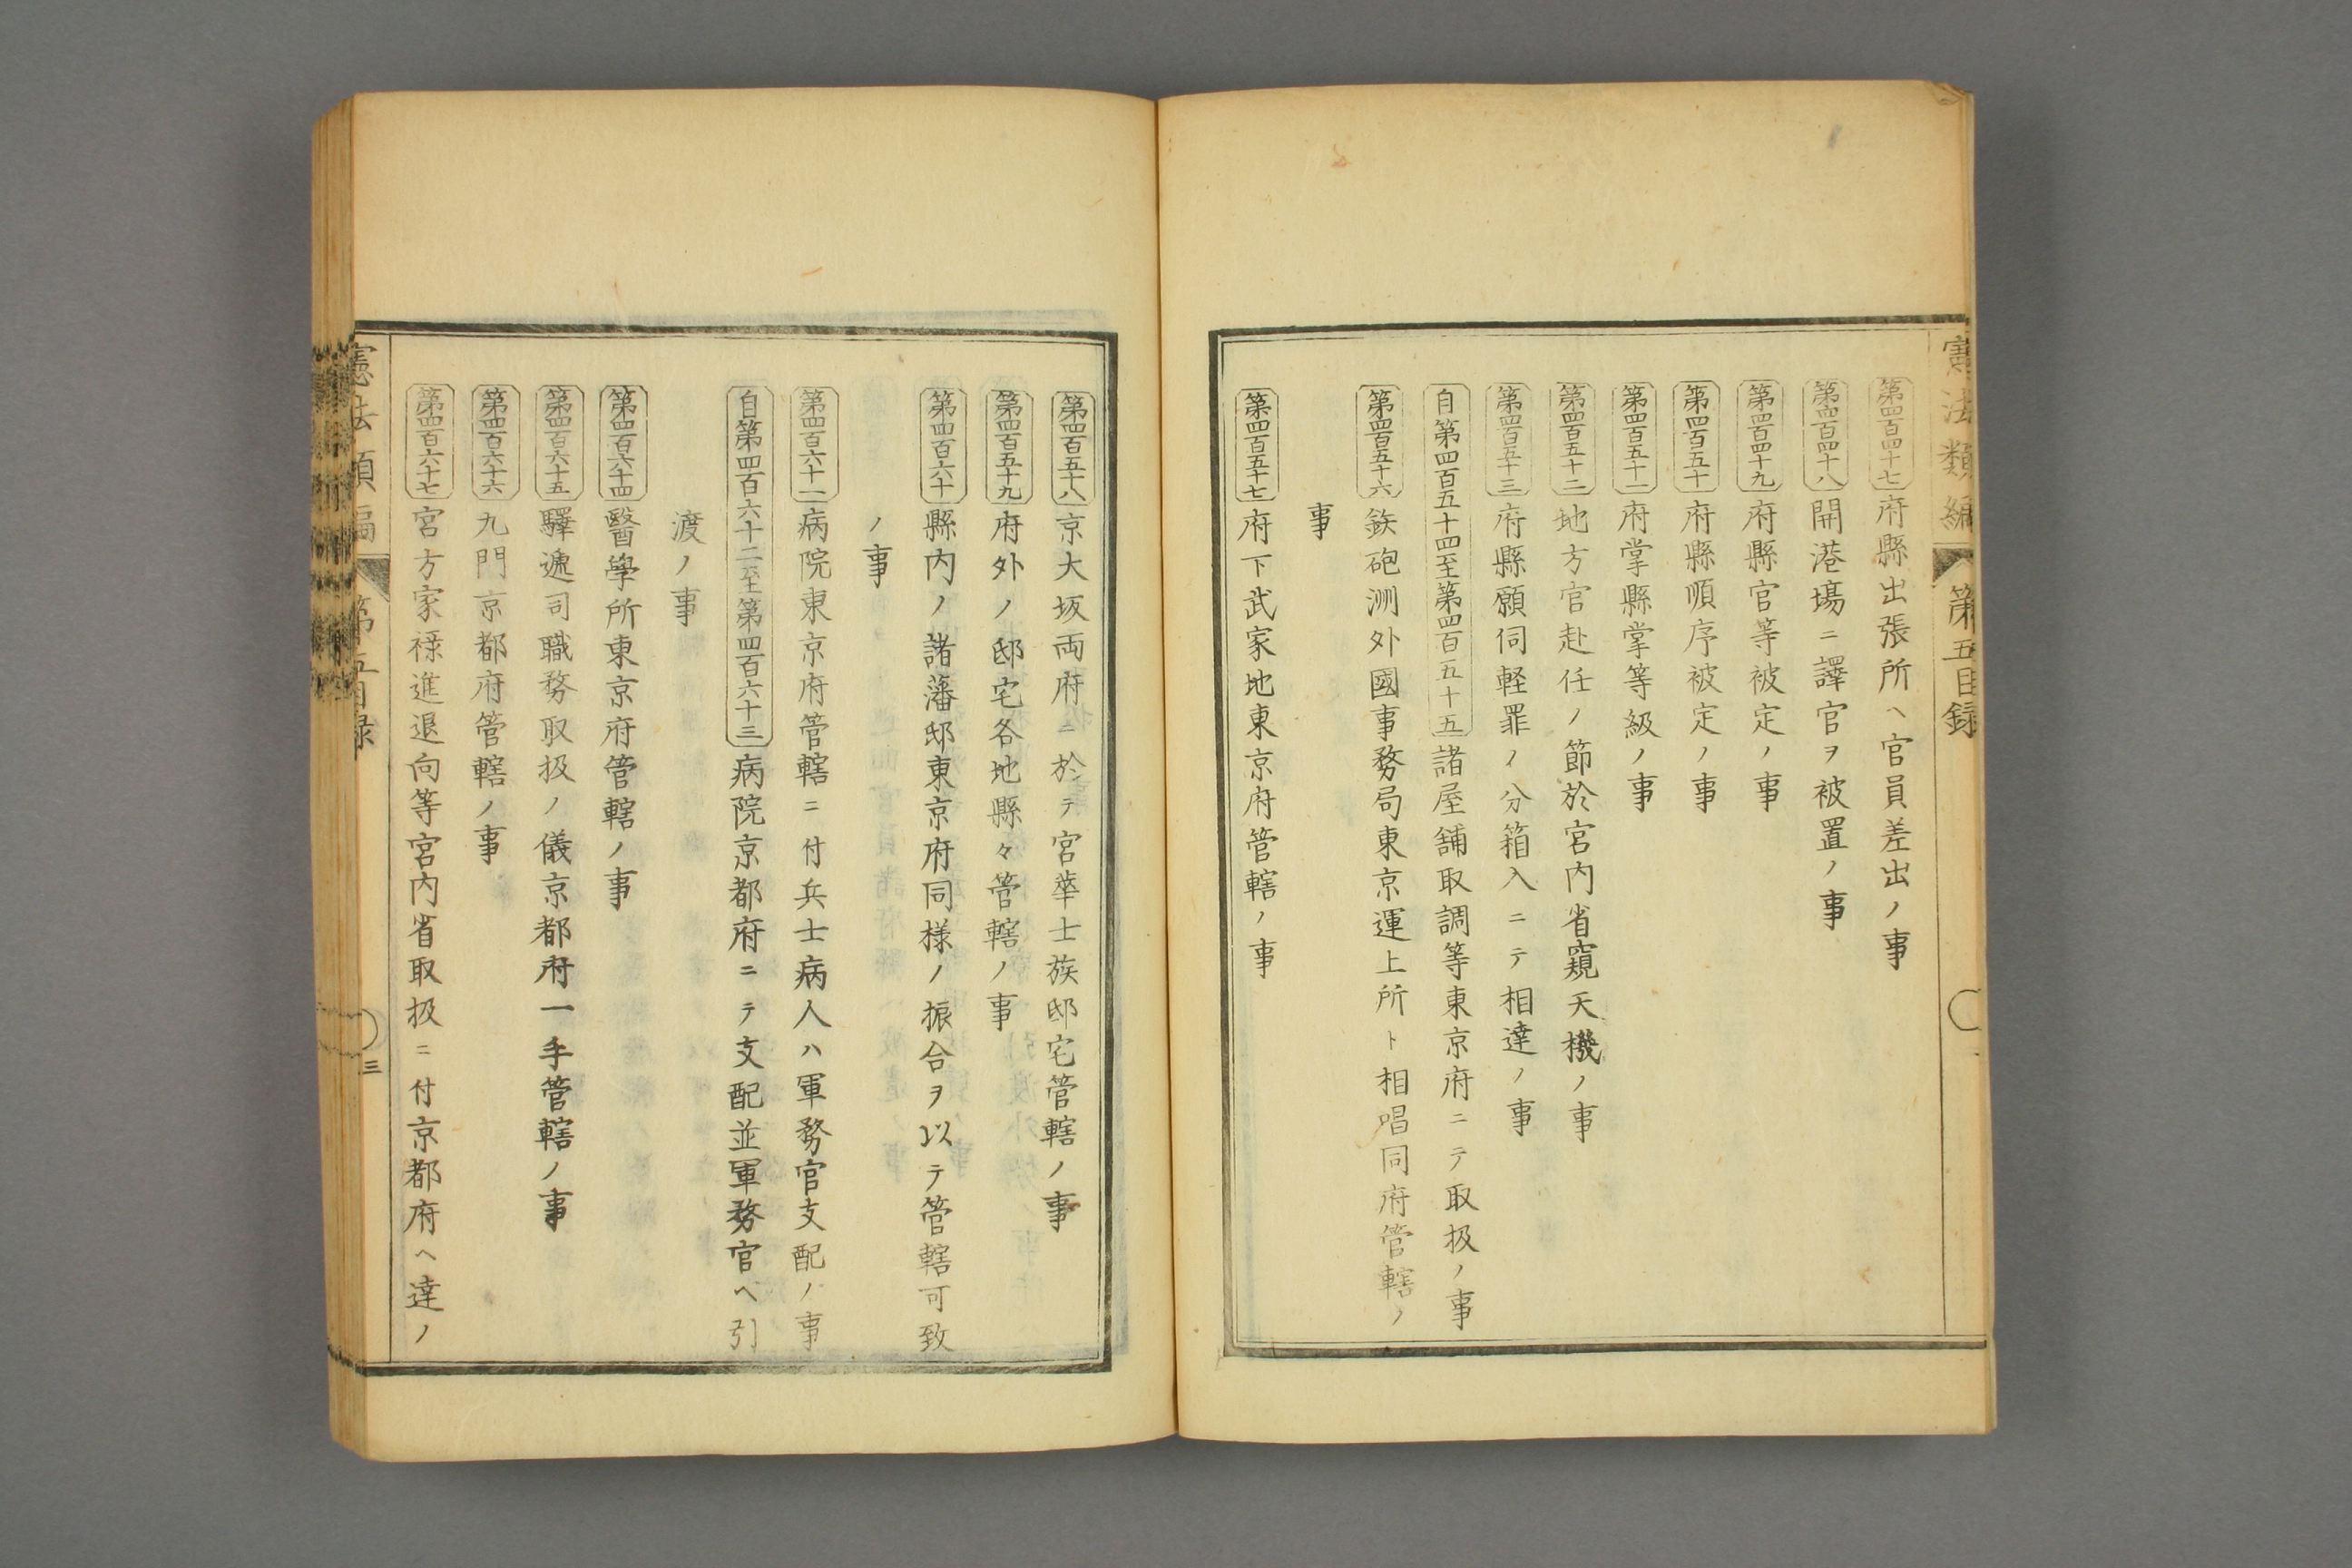 憲法類編 第五目録
第四百四十七 府縣出張所ヘ官員差出ノ事
第四百四十八 開港塲ニ譯官ヲ被置ノ事
第四百四十九 府縣官等被定ノ事
第四百五十 府縣順序被定ノ事
第四百五十一 府掌縣掌等級ノ事
第四百五十二 地方官赴任ノ節於宮内省窺天機ノ事
第四百五十三 府縣願伺軽罪ノ分箱入ニテ相達ノ事
自第四百五十四至第四百五十五 諸屋舗取調等東京府ニテ取扱ノ事
第四百五十六 鉄砲洲外國事務局東京運上所ト相唱同府管轄ノ
事
第四百五十七 府下武家地東京府管轄ノ事
第四百五十八 京大坂両府ニ於テ宮華士族邸宅管轄ノ事
第四百五十九 府外ノ邸宅各地縣々管轄ノ事
第四百六十 縣内ノ諸藩邸東京府同様ノ振合ヲ以テ管轄可致
ノ事
第四百六十一 病院東京府管轄ニ付兵士病人ハ軍務官支配ノ事
自第四百六十二至第四百六十三 病院京都府ニテ支配並軍務官ヘ引
渡ノ事
第四百六十四 醫學所東京府管轄ノ事
第四百六十五 驛逓司職務取扱ノ儀京都府一手管轄ノ事
第四百六十六 九門京都府管轄ノ事
第四百六十七 宮方家禄進退向等宮内省取扱ニ付京都府ヘ達ノ
憲法類編 第五目録 三